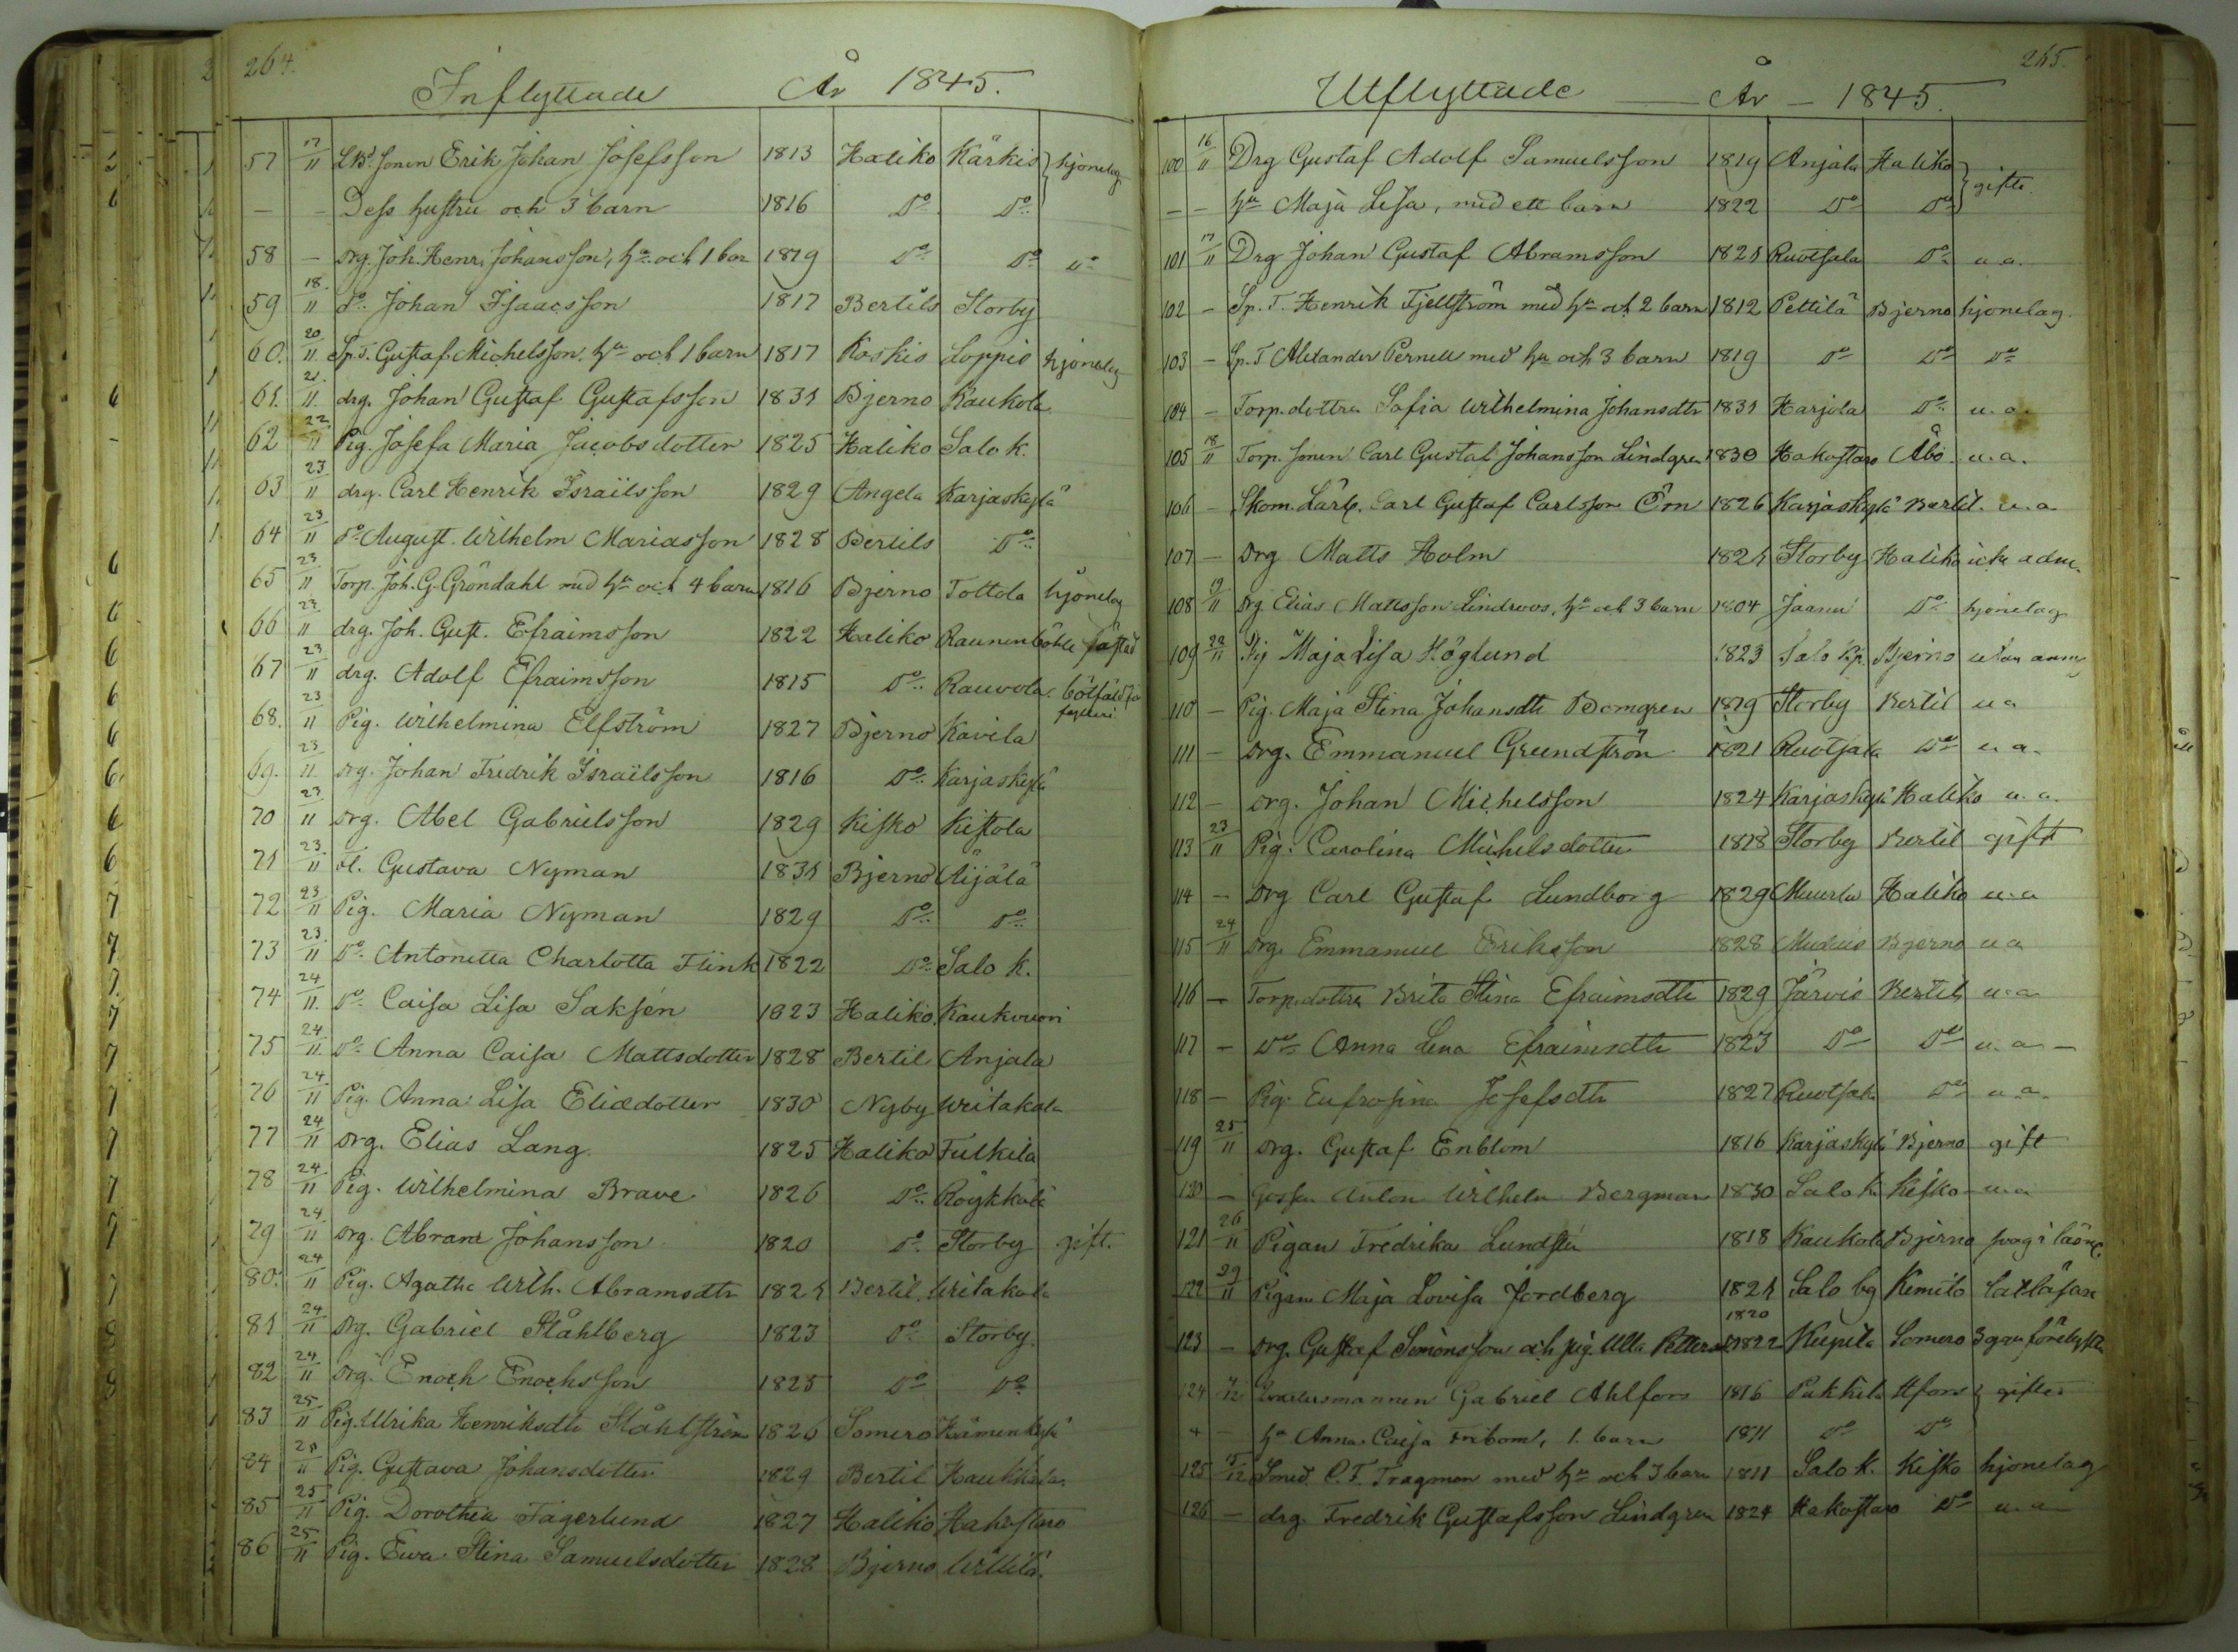 264.
Inflyttade År 1845.
57 17/11 Lbd. Sonen Erik Johan Josefsson 1813 Haliko Kärkis } hjonelag
— – Dess hustru och 3 barn 1816 Do Do
58 – Drg. Joh. Henr. Johansson, hu och 1 bar 1819 Do Do Do
59 18/11 Do Johan Isaacsson 1817 Bertils Storby
60. 20/11 Sp. T. Gustaf Michelsson, hu och 1 barn 1817 Koskis Loppis hjonelag
61. 21/11 drg. Johan Gustaf Gustafsson 1831 Bjerno Kaukola
62 22/11 Pig. Josefa Maria Jacobsdotter 1825 Haliko Salo k.
63 23/11 drg. Carl Henrik Israilsson 1829 Angela Karjaskylä
64 23/11 Do August Wilhelm Mariasson 1828 Bertils Do
65 23/11 Torp. Joh. G. Gröndahl med hu och 4 barn 1816 Bjerno Tottola hjonelag
66 23/11 drg. Joh. Gust. Efraimsson 1822 Haliko Raunenböhle fästad
67 23/11 drg. Adolf Efraimsson 1815 Do Rauvola
68. 23/11 Pig. Wilhelmina Elfström 1827 Bjerno Kavila
69. 23/11 drg. Johan Fredrik Israilsson 1816 Do Karjaskylä
70 23/11 drg. Abel Gabrielsson 1829 Kisko Kistola
71 23/11 Fl. Gustava Nyman 1831 Bjerno Äijälä
72 23/11 Pig. Maria Nyman 1829 Do Do
73 23/11 Do Antonetta Charlotta Flink 1822 Do Salo k.
74 24/11 Do Caisa Lisa Saksén 1823 Haliko Kaukvuori
75 24/11 Do Anna Caisa Mattsdotter 1828 Bertil Anjala
76 24/11 Pig. Anna Lisa Eliædotter 1830 Nyby Writakala
77 24/11 Drg. Elias Lang 1825 Haliko Fulkila
78 24/11 Pig. Wilhelmina Brave 1826 Do Röykkälä
79 24/11 Drg. Abram Johansson 1820 Do Storby gift.
80. 24/11 Pig. Agatha Wilh. Abramsdtr 1821 Bertil Writakala
81 24/11 Drg. Gabriel Ståhlberg 1823 Do Storby
82 24/11 Drg. Enoch Enochsson 1825 Do Do
83 25/11 Pig. Ulrika Henriksdtr Ståhlström 1826 Somero Hämenkylä
84 25/11 Pig. Gustava Johansdotter 1829 Bertil Haukkala
85 25/11 Pig. Dorothea Fagerlund 1827 Haliko Hakostaro
86 25/11 Pig. Ewa Stina Samuelsdotter 1828 Bjerno Willilä
265.
Utflyttade — År – 1845.
100 16/11 Drg Gustaf Adolf Samuelsson 1819 Anjala Haliko } gifte
— – hu Maja Lisa, med ett barn 1822 Do Do
101 17/11 Drg Johan Gustaf Abramsson 1821 Ruotsala Do u.a.
102 – Sp. T. Henrik Fjellström med hu och 2 barn 1812 Pettilä Bjerno hjonelag
103 – Sp. T Alexander Pernell med hu och 3 barn 1819 Do Do Do
104 – Torp. dottren Sofia Wilhelmina Johansdtr 1831 Harjola Do u.a.
105 18/11 Torp. Sonen Carl Gustaf Johansson Lindgren 1830 Hakostaro Åbo u.a.
106 – Skom. Lärl. Carl Gustaf Carlsson Örn 1826 Karjaskylä Bertil. u.a
107 – Drg Matts Holm 1821 Storby Haliko icke adm.
108 19/11 Drg. Elias Mattsson Lindroos, hu och 3 barn 1804 Jaanu Do hjonelag
109 22/11 Pig Maja Lisa Höglund 1823 Salo kp. Bjerno utan anm
110 – Pig. Maja Stina Johansdtr Blomgren 1819 Storby Bertil u a
111 – Drg. Emmanuel Grundström 1821 Ruotsala Do u.a.
112 – Drg. Johan Michelsson 1824 Karjaskylä Haliko u.a.
113 23/11 Pig. Carolina Michelsdotter 1818 Storby Bertil gift
114 – Drg Carl Gustaf Lundborg 1829 Muurla Haliko u.a
115 24/11 Drg. Emmanuel Eriksson 1828 Bjerno u a
116 – Torp. dottren Brita Stina Efraimsdtr 1829 Järvis Bertil u.a
117 – Do Anna Lena Efraimsdtr 1823 Do Do u.a –
118 – Pig. Eufrosina Josefsdtr 1827 Ruotsala Do u.a.
119 25/11 Drg. Gustaf Enblom 1816 Karjaskylä Bjerno gift
120 – Gossen Anton Wilhelm Bergman 1830 Salo k. Kisko u.a
121 26/11 Pigan Fredrika Lundsten 1818 Kaukola Bjerno svag i läsn.
122 29/11 Pigan Maja Lovisa Jordberg 1821 Salo bg Kimito
123 – Drg. Gustaf Simonsson och pig. Ulla Pettersd 1820 1822 Kupila Somero 3 gån förelysta
124 Gabriel Ahlfors 1816 Pukkila Hfors } gifte
+ – hu Anna Caisa Fribom, 1. barn 1811 Do Do
125 15/12 Smed. C. F. Tragman med hu och 3 barn 1811 Salo k. Kisko hjonelag
126 – drg. Fredrik Gustafsson Lindgren 1824 Hakostaro Do u.a